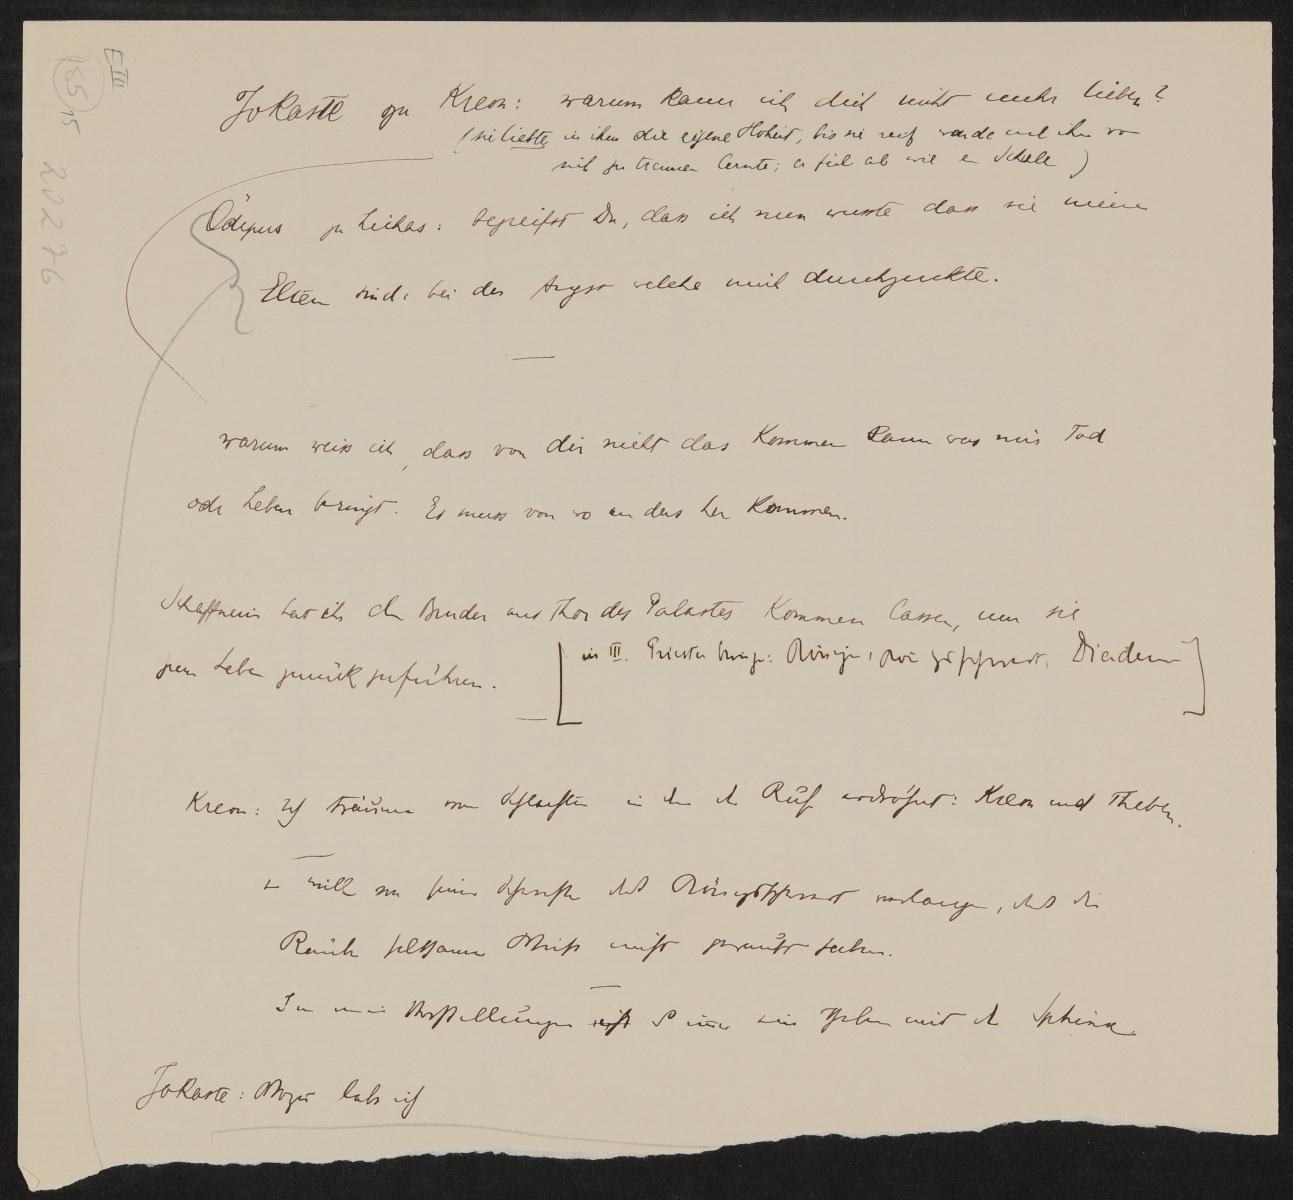 E III
185/15
20276
Jokaste zu Kreon: warum kann ich dich nicht mehr lieben?
(sie liebte in ihm die eigene Hoheit, bis sie reif wurde und ihn von
sich zu trennen lernte; er fiel ab wie eine Schale)
Ödipus zu Lichas: begreifst Du, dass ich nun wusste dass sie meine
Eltern sind: bei der Angst welche mich durchzuckte.
warum weiss ich, dass von dir nicht das Kommen kann was mir Tod
oder Leben bringt. Es muss von wo anders her Kommen.
Schaffnerin hat ihr den Bruder ans Thor des Palastes Kommen lassen, um sie
zum Leben zurückzuführen.
[in III. Priester bringen: Königs, Diadem]
Kreon: Ich träume von in der Ruf: Kreon und Theben.
will von seiner das Königsschwert verlangen, das die
Räuber seltsamer Weise nicht geraubt haben.
In mein Vorstellungen mit der Sphinx
Jokaste: Wozu lebe ich